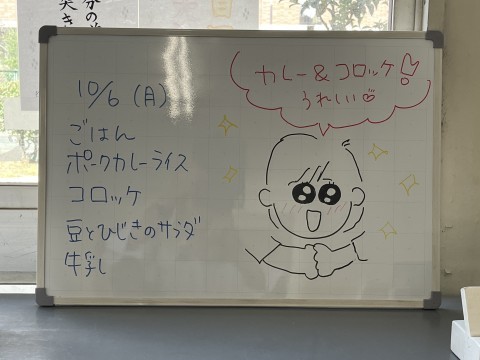 10/6 (月)
ごはん
ポークカレーライス
コロッケ
豆とひじきのサラダ
牛乳
カレー&コロッケ!
うれしい♡